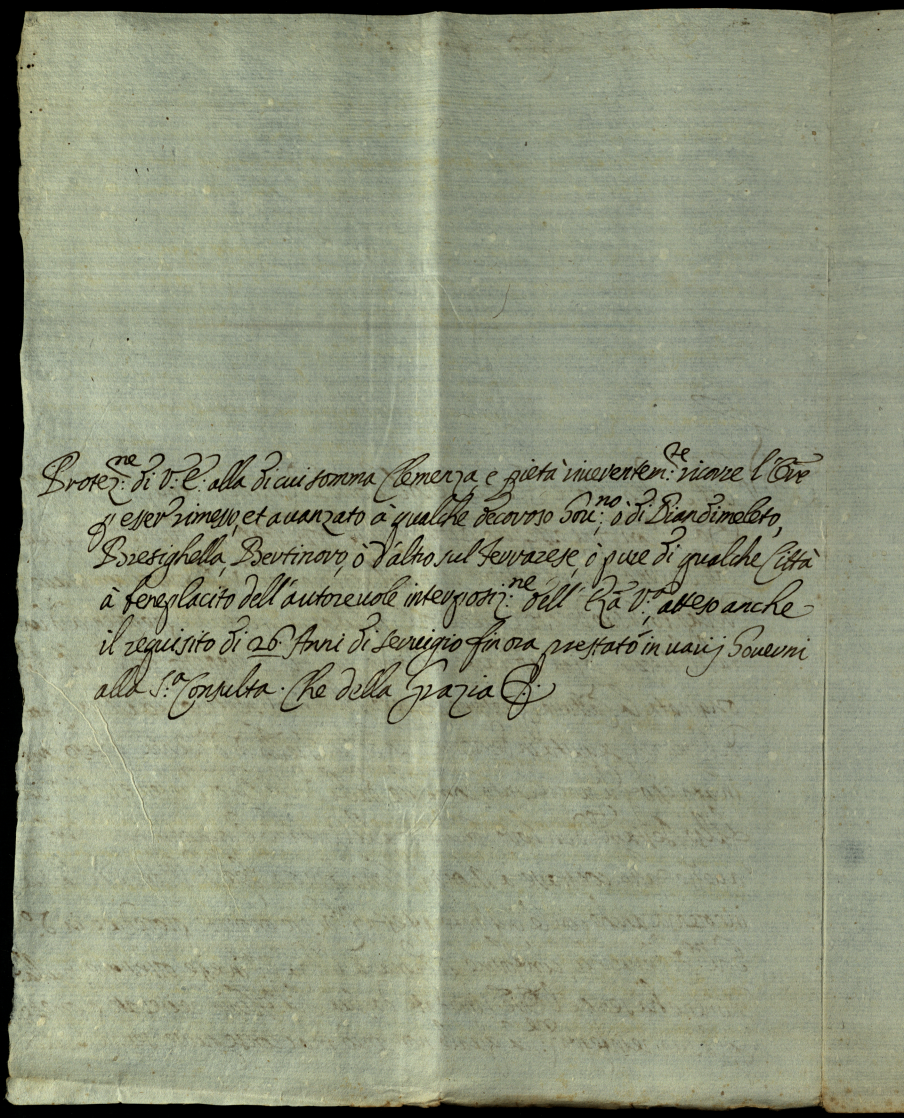 Protez:ne di V: E: alla di cui somma Clemenza, e pietà riverentem:te ricorre l'Ore
p esser rimesso, et avanzato à qualche decoroso Gov:no, ò di Piandimeleto,
Bresighella, Bertinoro, ò d'altro sul Ferrarese, ò pure di qualche Città
à beneplacito dell'autorevole interposiz:ne dell' Eza V:a, atteso anche
il requisito di 26. Anni di servigio finora prestato in varij Governi
alla S:a Consulta. Che della Grazia